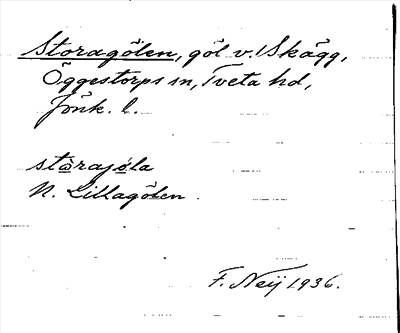 Storagölen, göl v. Skägg,
Öggestorps sn, Tveta hd,
Jönk. l.
stòrajǿla
N. Lillagölen.
F. Neij 1936.